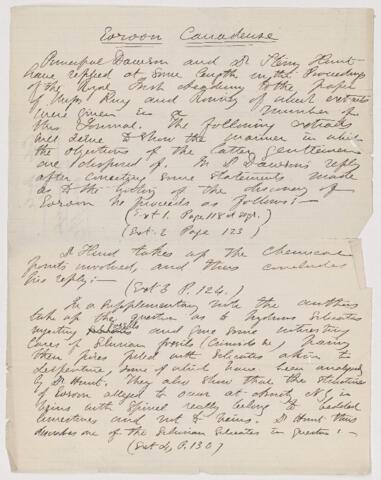 Eozoon Canadense
Principal Dawson and Dr Sterry Hunt
have replied at some length in the Proceedings
of the Royal Irish Academy to the paper
of Messrs King and Rowney of which extracts
were given in Number of
this Journal. The following extracts
will serve to show the manner in which
the objections of the latter gentlemen
are disposed of. Dawson's reply
after correcting some statements made
as to the history of the discovery of
Eozoon he proceeds as follows:—
(Ext 1. Page 118 of orgl.)
(Ext. 2 Page 123)
Dr Hunt takes up the Chemical
points involved, and thus concludes
his reply:—
(Ext 3 P. 124.)
In a supplementary note the authors
take up the question as to hydrous Silicates
injecting fossils and give some interesting
Cases of Silurian fossils (Crinoids &c.) having
their pores filled with Silicates akin to
some of which have been analysed
by Dr Hunt. They also show that the structures
of Eozoon alleged to occur at N.J. in
veins with Spinel really belong to bedded
limestones and not to veins. Dr Hunt thus
describes one of the Silurian Silicates in question:—
(Ext 4, P. 130)